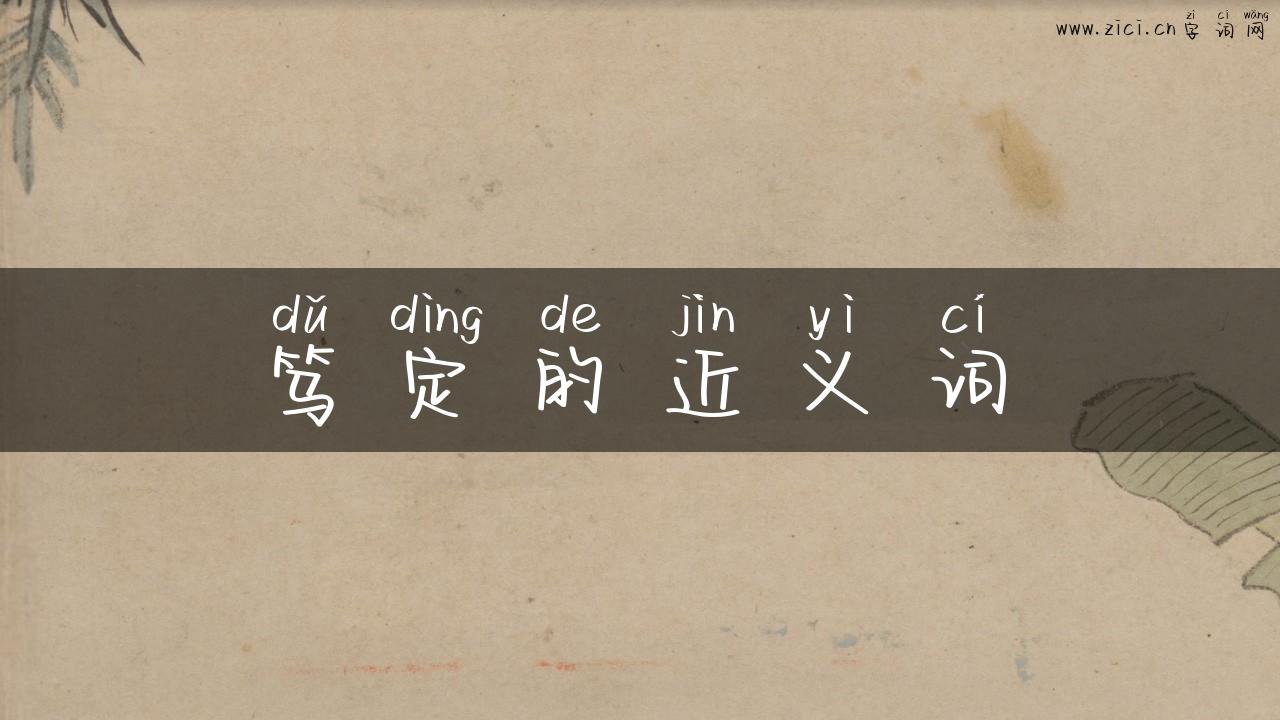 zì cí wǎng
www.zici.cn 字词网
dǔ dìng de jìn yì cí
笃定的近义词